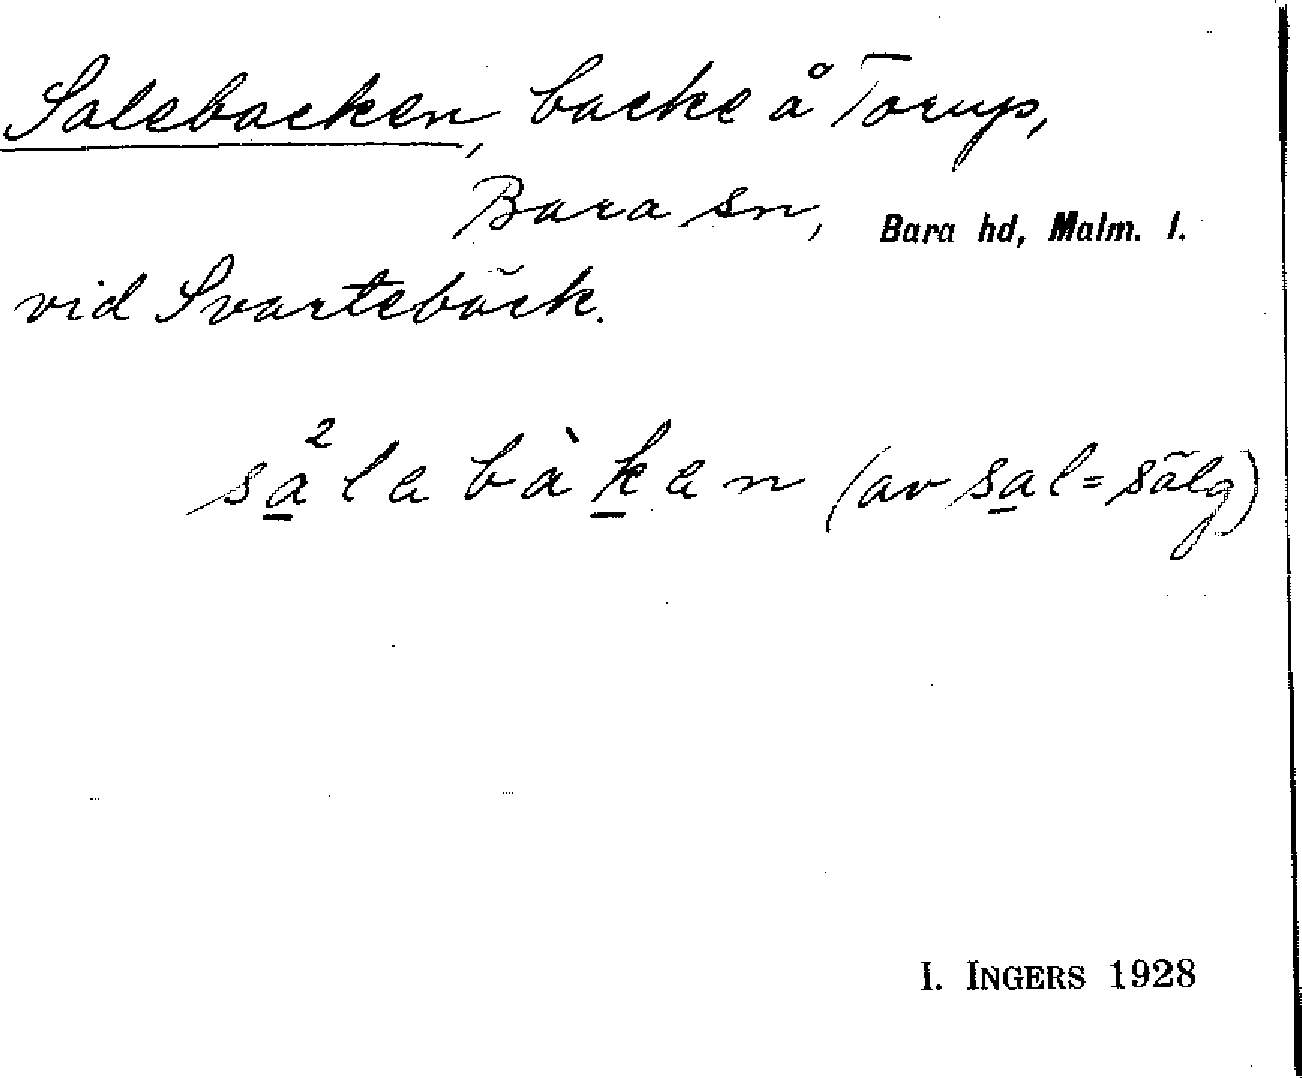 Salebacken, backe å Torup,
Bara sn, Bara hd, Malm. l.
vid Svartebäck.
sa²la bàkan (av sal = sälg)
I. INGERS 1928